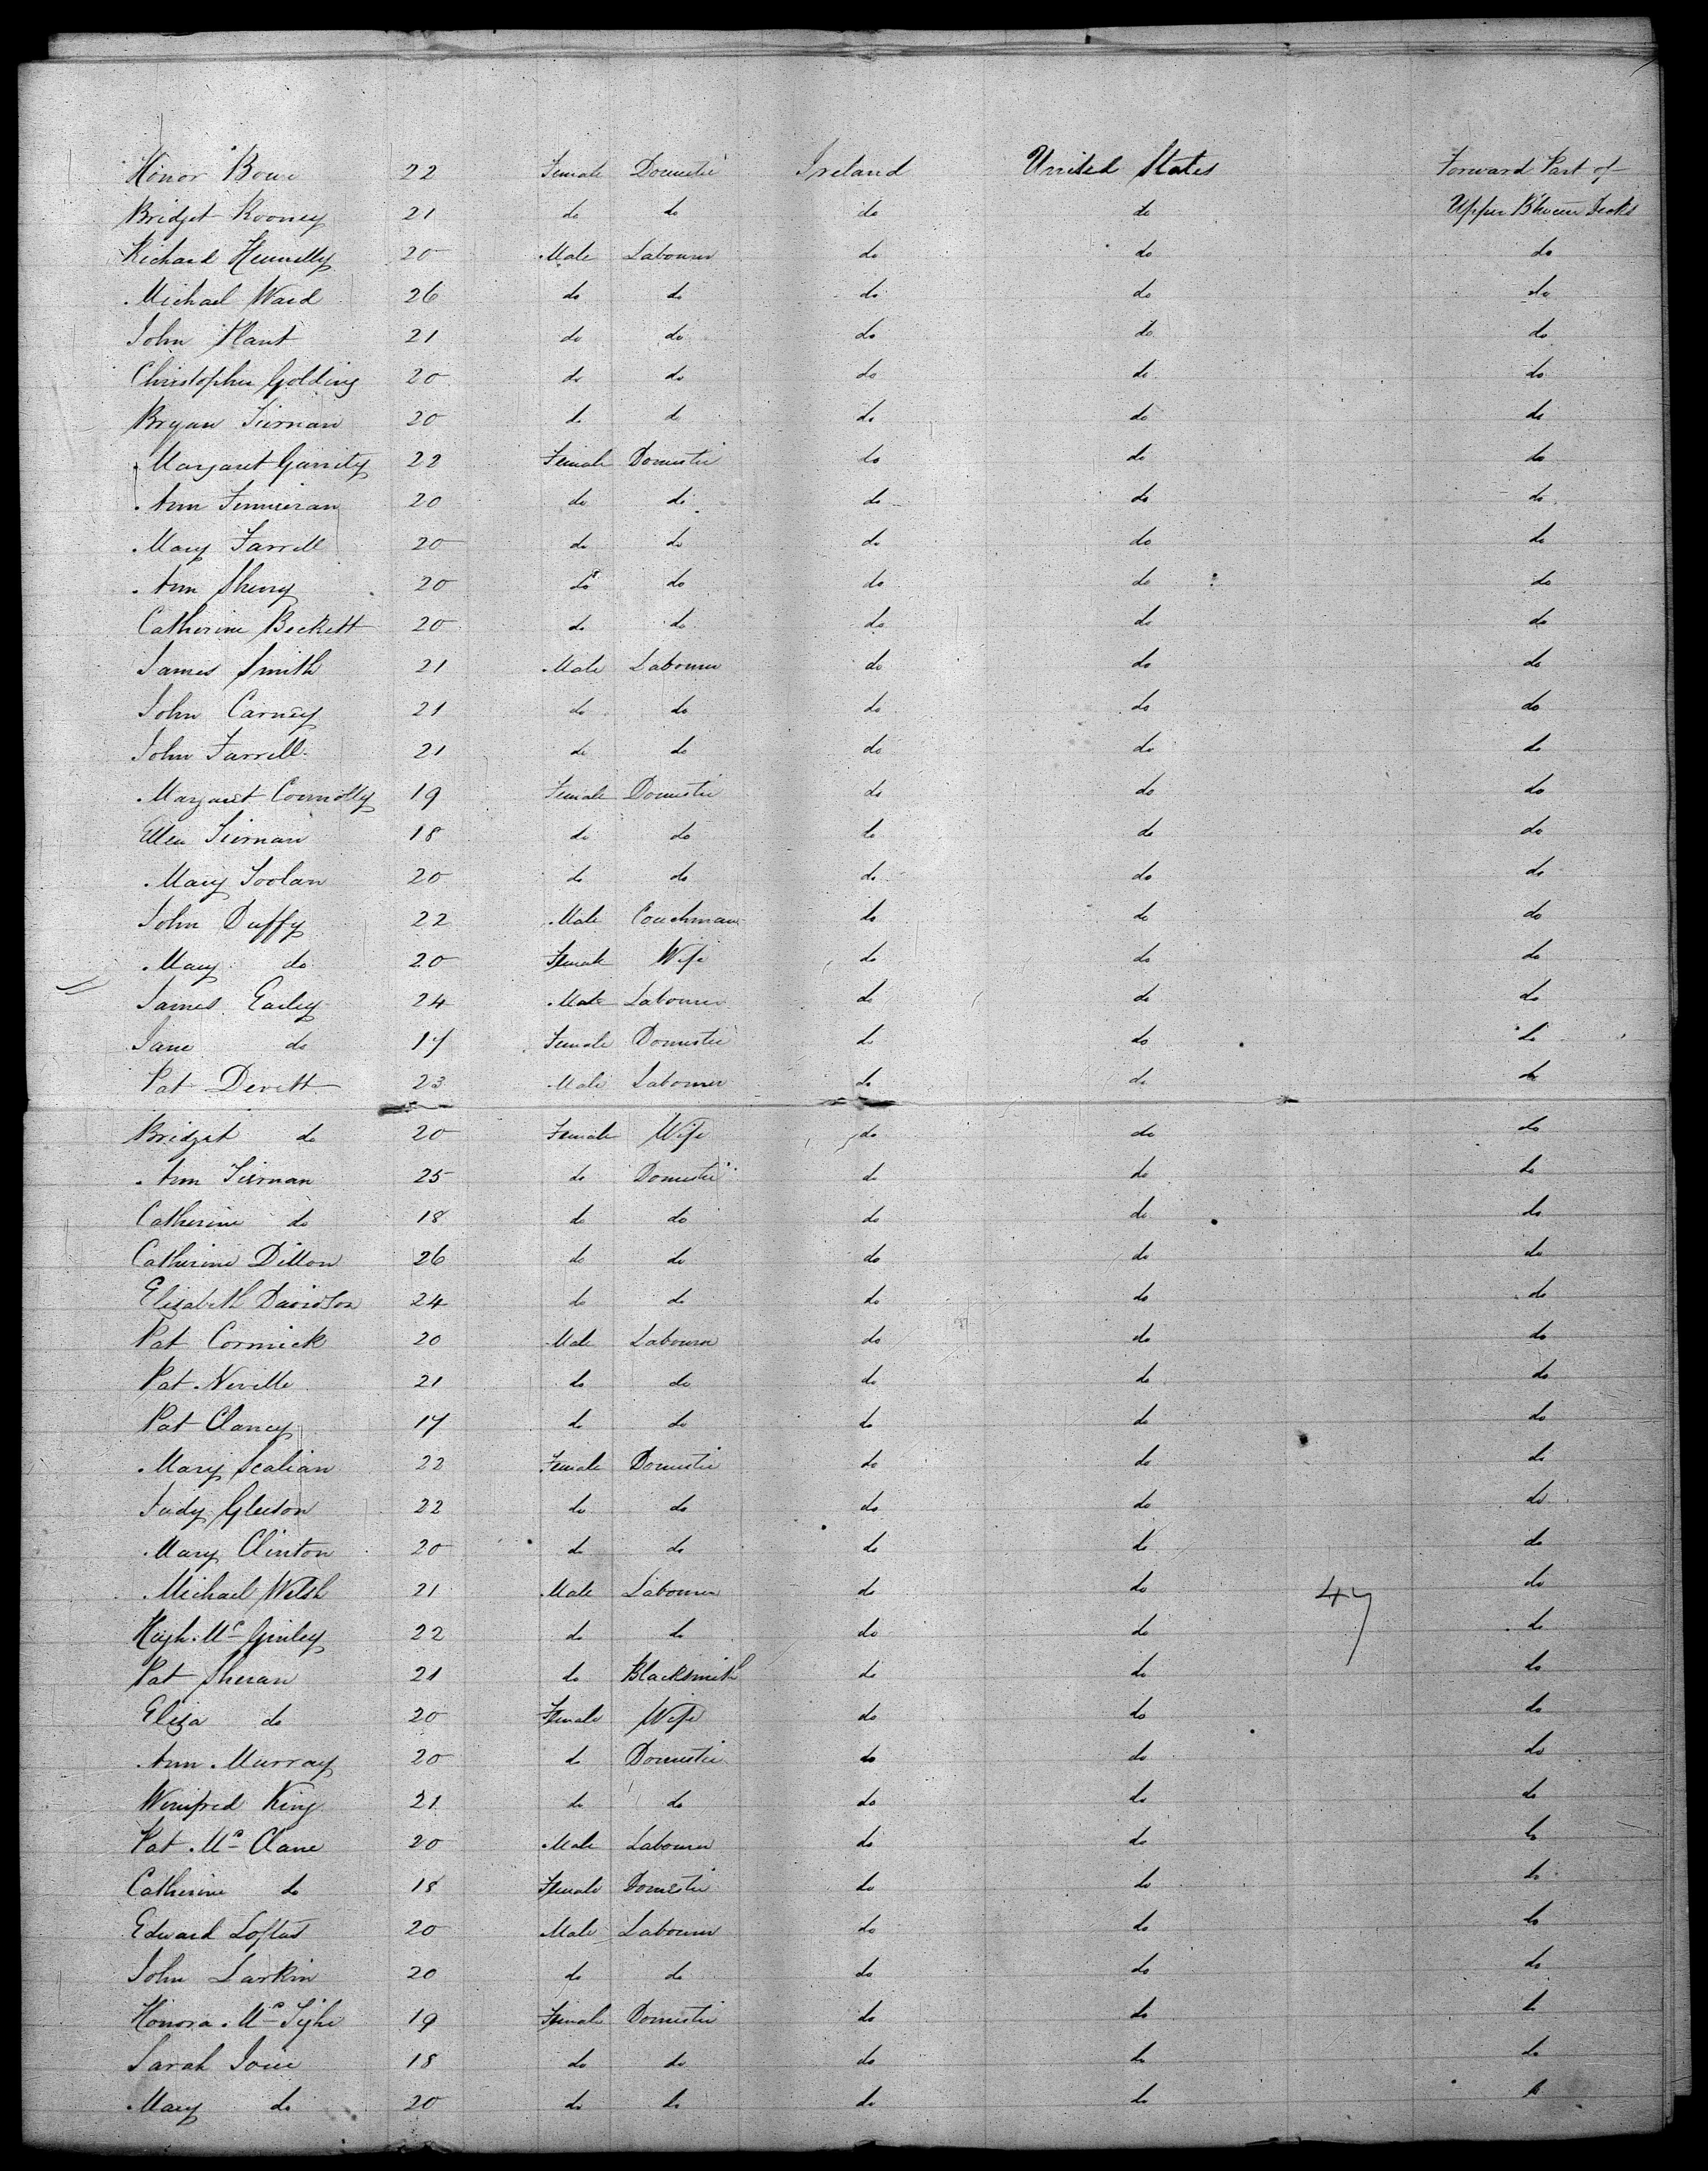 Honor Bowe 22 Female Domestic Ireland United States Forward Part of
Bridget Rooney 21 do do do do Upper B'tween Decks
Richard Hennelly 20 Male Labourer do do do
Michael Ward 26 do do do do do
John Plant 21 do do do do do
Christopher Golding 20 do do do do do
Bryan Tiernan 20 do do do do do
Margaret Garrity 22 Female Domestic do do do
Ann Finneran 20 do do do do do
Mary Farrell 20 do do do do do
Ann Sherry 20 do do do do do
Catherine Beckett 20 do do do do do
James Smith 21 Male Labourer do do do
John Carney 21 do do do do do
John Farrell 21 do do do do do
Margaret Connolly 19 Female Domestic do do do
Ellen Tiernan 18 do do do do do
Mary Toolan 20 do do do do do
John Duffy 22 Male Coachman do do do
Mary do 20 Female Wife do do do
James Earley 24 Male Labourer do do do
Jane do 17 Female Domestic do do do
Pat Devitt 23 Male Labourer do do do
Bridget do 20 Female Wife do do do
Ann Tiernan 25 do Domestic do do do
Catherine do 18 do do do do do
Catherine Dillon 26 do do do do do
Elizabeth Davidson 24 do do do do do
Pat Cormick 20 Male Labourer do do do
Pat Neville 21 do do do do do
Pat Clancy 17 do do do do do
Mary Scalian 22 Female Domestic do do do
Judy Gleeson 22 do do do do do
Mary Clinton 20 do do do do do
Michael Welsh 21 Male Labourer do do 47 do
Hugh McGinley 22 do do do do do
Pat Sheran 21 do Blacksmith do do do
Eliza do 20 Female Wife do do do
Ann Murray 20 do Domestic do do do
Winifred King 21 do do do do do
Pat McClane 20 Male Labourer do do do
Catherine do 18 Female Domestic do do do
Edward Loftus 20 Male Labourer do do do
John Larkin 20 do do do do do
Honora McTighe 19 Female Domestic do do do
Sarah Joice 18 do do do do do
Mary do 20 do do do do do